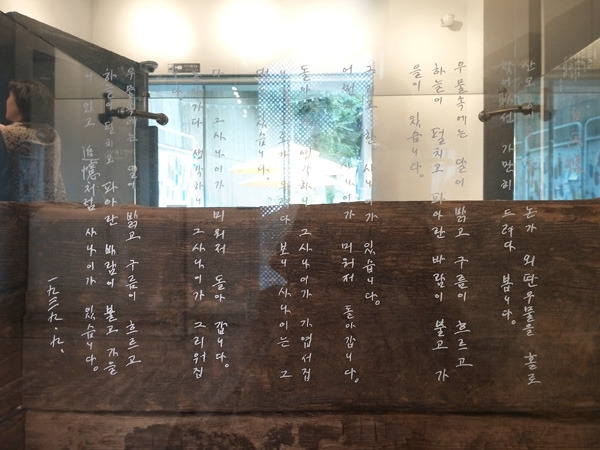 논가 외딴우물을 홀로
찾아가선 가만히 드려다 봅니다.
우물속에는 달이 밝고 구름이 흐르고
하늘이 펼치고 파아란 바람이 불고 가
을이 있습니다.
그리고 한 사나이가 있습니다.
어쩐지 사나이가 미워져 돌아갑니다.
돌아가다 생각하니 그사나이가 가엽서집
드려다 보니 사나이는 그
대로 있습니다.
다시 그사나이가 미워져 돌아 갑니다.
돌아가다 생각하니 그사나이가 그리워집
니다.
우물속에는 달이 밝고 구름이 흐르고
하늘이 펼치고 파아란 바람이 불고 가을
이 있고 追憶처럼 사나이가 있습니다.
一九三九.九.